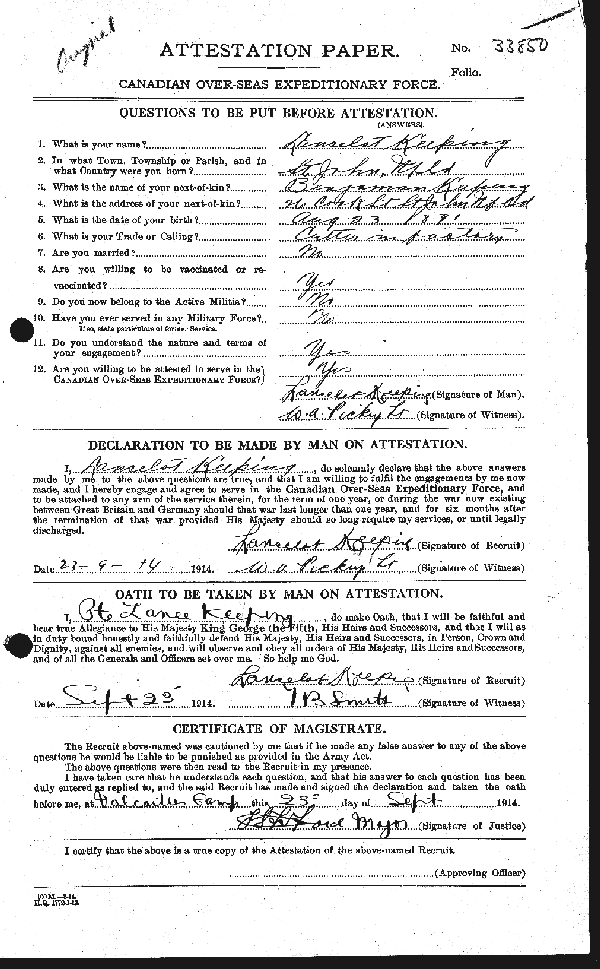 Original
ATTESTATION PAPER.
No. 33850
Folio.
CANADIAN OVER-SEAS EXPEDITIONARY FORCE.
QUESTIONS TO BE PUT BEFORE ATTESTATION.
(ANSWERS).
1. What is your name? Lancelot Keeping
2. In what Town, Township or Parish, and in
what Country were you born? St John, Nfld
3. What is the name of your next-of-kin? Benjaman Keeping
4. What is the address of your next-of-kin? St John Nfld
5. What is the date of your birth? Aug 23 1881
6. What is your Trade or Calling? Cutter in factory
7. Are you married? No
8. Are you willing to be vaccinated or re-
vaccinated? Yes
9. Do you now belong to the Active Militia? No
10. Have you ever served in any Military Force? No
If so, state particulars of former Service.
11. Do you understand the nature and terms of
your engagement? Yes
12. Are you willing to be attested to serve in the
CANADIAN OVER-SEAS EXPEDITIONARY FORCE? Yes
Lancelot Keeping (Signature of Man).
W.A. Lt (Signature of Witness).
DECLARATION TO BE MADE BY MAN ON ATTESTATION.
I, Lancelot Keeping, do solemnly declare that the above answers
made by me to the above questions are true, and that I am willing to fulfil the engagements by me now
made, and I hereby engage and agree to serve in the Canadian Over-Seas Expeditionary Force, and
to be attached to any arm of the service therein, for the term of one year, or during the war now existing
between Great Britain and Germany should that war last longer than one year, and for six months after
the termination of that war provided His Majesty should so long require my services, or until legally
discharged.
Lancelot Keeping (Signature of Recruit)
Date 23-9-14 1914. W.A. Lt (Signature of Witness)
OATH TO BE TAKEN BY MAN ON ATTESTATION.
I, Pte Lance Keeping, do make Oath, that I will be faithful and
bear true Allegiance to His Majesty King George the Fifth, His Heirs and Successors, and that I will as
in duty bound honestly and faithfully defend His Majesty, His Heirs and Successors, in Person, Crown and
Dignity, against all enemies, and will observe and obey all orders of His Majesty, His Heirs and Successors,
and of all the Generals and Officers set over me. So help me God.
Lancelot Keeping (Signature of Recruit)
Date Sept 23 1914. Smith (Signature of Witness)
CERTIFICATE OF MAGISTRATE.
The Recruit above-named was cautioned by me that if he made any false answer to any of the above
questions he would be liable to be punished as provided in the Army Act.
The above questions were then read to the Recruit in my presence.
I have taken care that he understands each question, and that his answer to each question has been
duly entered as replied to, and the said Recruit has made and signed the declaration and taken the oath
before me, at Valcartier Camp this 23 day of Sept 1914.
Major (Signature of Justice)
I certify that the above is a true copy of the Attestation of the above-named Recruit.
(Approving Officer)